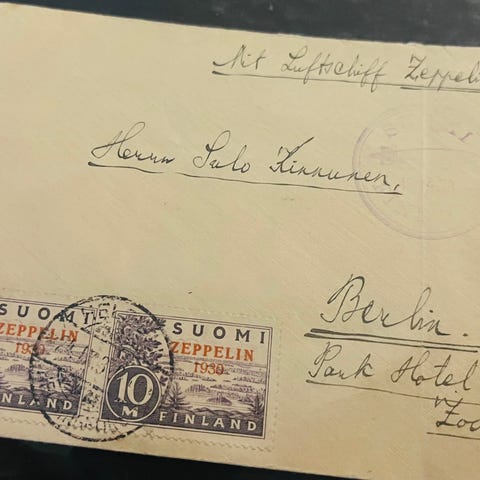 Mit Luftschiff Zeppeli
Herrn Salo Kinnunen,
Berlin.
Park Hotel
"Zo
SUOMI
ZEPPELIN
1930
NLAND
SUOMI
ZEPPELIN
1930
10
M
FINLAND